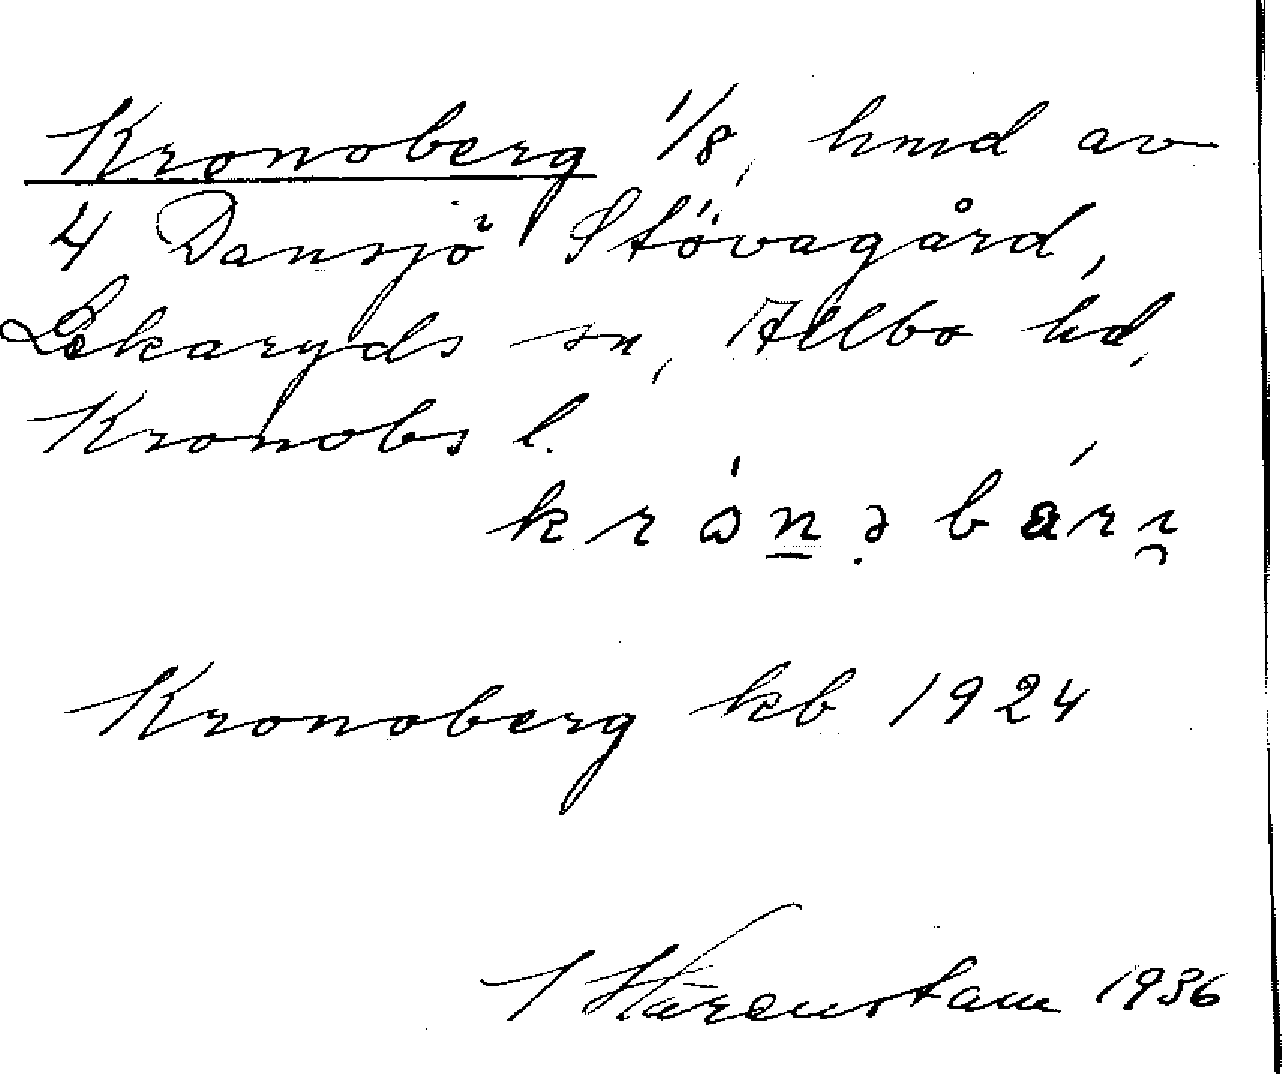 Kronoberg 1/8, hmd av
4 Dansjö Stövagård,
Lekaryds sn, Allbo hd,
Kronobs l.
krónəbárɪ
Kronoberg kb 1924
Härenstam 1936